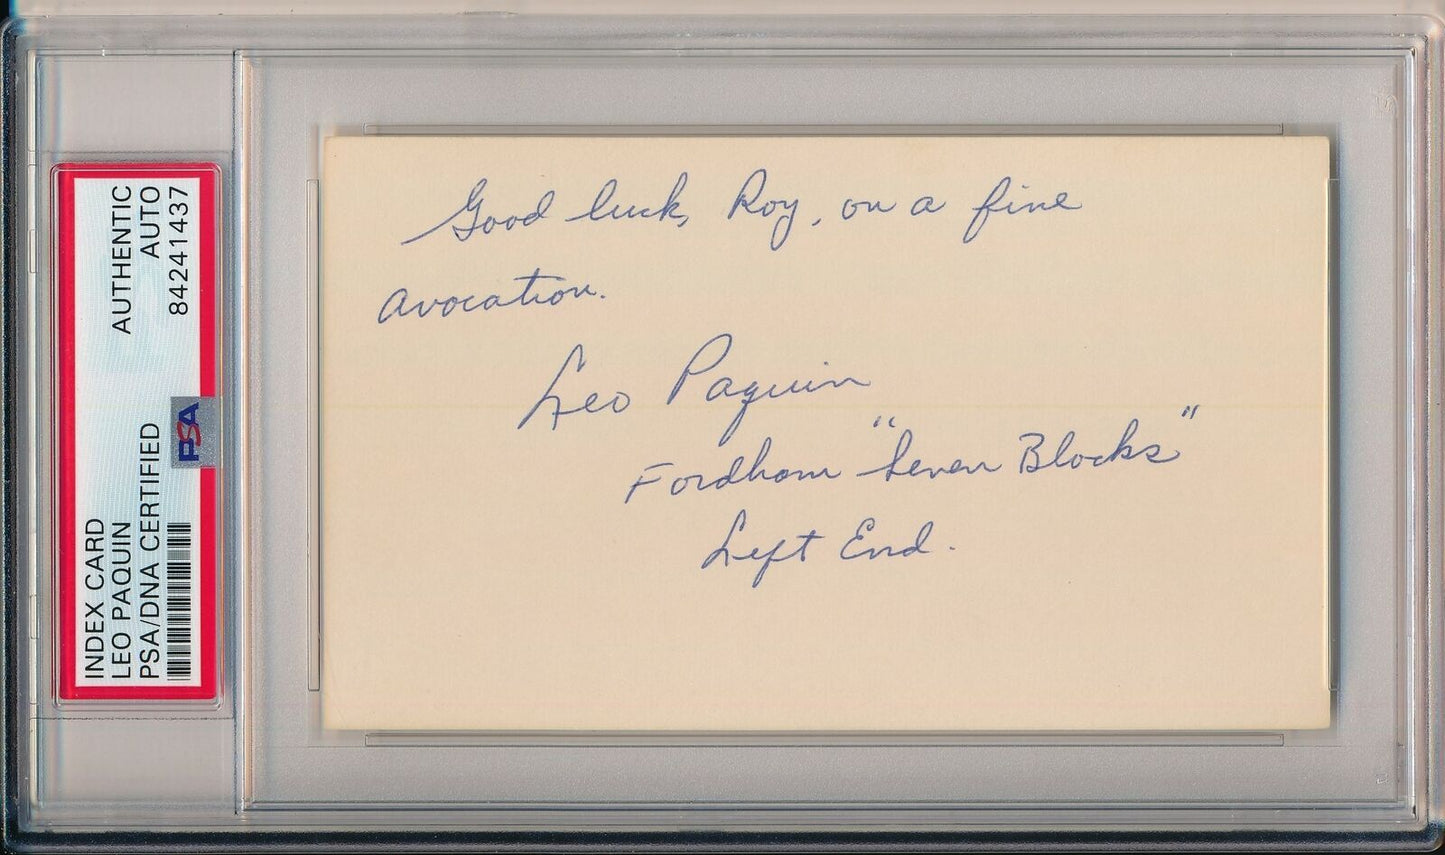 INDEX CARD
LEO PAQUIN
PSA/DNA CERTIFIED
AUTHENTIC
AUTO
84241437
PSA
Good luck, Roy, on a fine
avocation.
Leo Paquin
Fordham "Seven Blocks"
Left End.